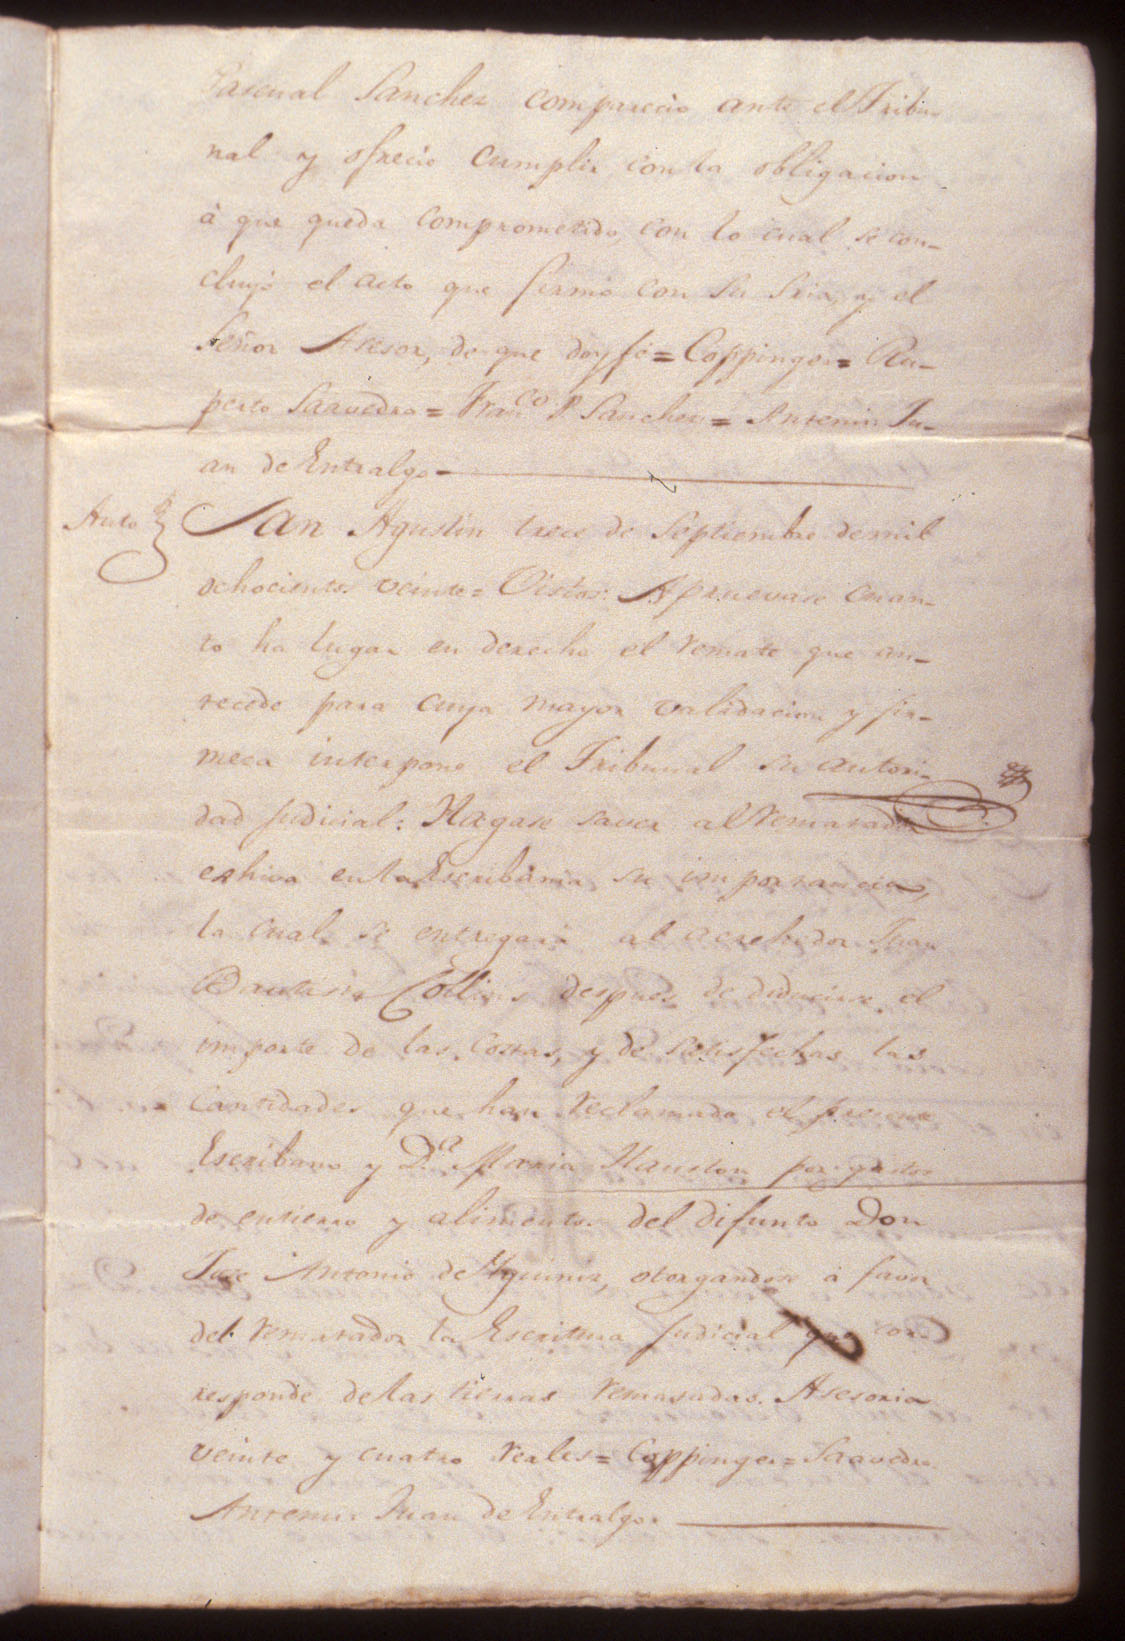 Pascual Sanchez comparecio ante el Tribu-
nal y ofrecio cumplir con la obligacion
à que queda comprometido, con lo cual se con-
cluyó el acto que firmó con su Sria, y el
Señor Asesor, de que doy fé = Coppinger = Ru-
perto Saavedra = Fran.co P. Sanchez = Antemi: Ju-
an de Entralgo =
Auto San Agustin trece de Septiembre de mil
ochocientos veinte = Vistos: Apruevase cuan-
to ha lugar en derecho el remate que an-
tecede para cuya mayor validacion y fir-
meza interpone el Tribunal su autori-
dad judicial: Hagase saver al rematador
exhiva en la Escribania su importancia,
la cual se entregará al acrehedor Juan
Bautista Collins despues de deducirse el
importe de las costas, y de satisfechas las
cantidades que han reclamado el presente
Escribano y D.a Maria Hauston por gastos
de entierro y alimentos del difunto Don
Jose Antonio de Yguiniz, otorgandose á favor
del rematador la Escritura judicial que cor-
responde de las tierras rematadas. Asesoria
veinte y cuatro reales = Coppinger = Saavedra.
Antemi: Juan de Entralgo